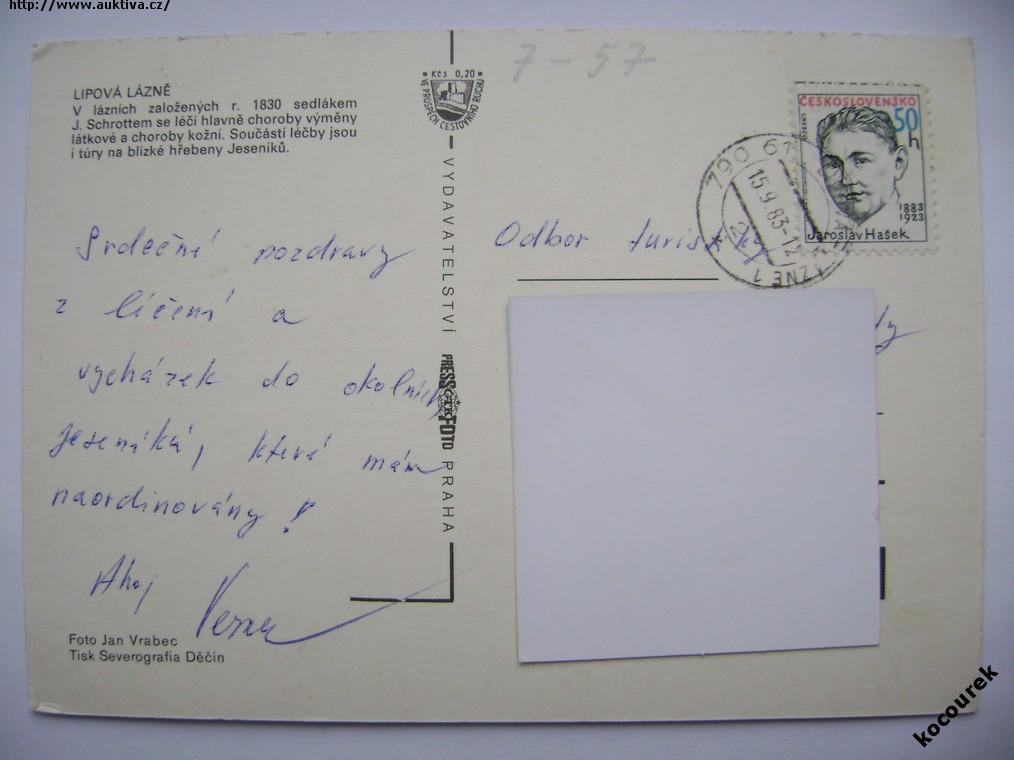 http://www.auktiva.cz/
7-57
LIPOVÁ LÁZNĚ
V lázních založených r. 1830 sedlákem
J. Schrottem se léčí hlavně choroby výměny
látkové a choroby kožní. Součástí léčby jsou
i túry na blízké hřebeny Jeseníků.
Kčs 0,20
VE PROSPĚCH CESTOVNÍHO RUCHU
ČESKOSLOVENSKO
50 h
1883
1923
Jaroslav Hašek
790 61
15.9.83-12
LÁZNĚ 1
Srdečné pozdravy
z léčení a
vycházek do okolních
Jeseníků, které mám
naordinovány!
Ahoj
Odbor turistiky
VYDAVATELSTVÍ PRESSFOTO PRAHA
Foto Jan Vrabec
Tisk Severografia Děčín
kocourek